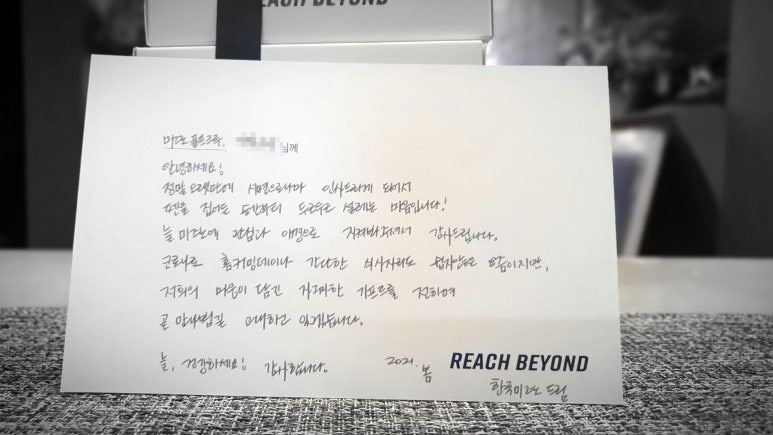 REACH BEYOND
미즈노 골프크루, 님께
안녕하세요!
정말 오랫만에 서면으로나마 인사드리게 되어서
펜을 집어든 순간부터 두근두근 설레는 마음입니다!
늘 미즈노에 관심과 애정으로 지켜봐주셔서 감사드립니다.
코로나로 홈커밍데이나 간단한 식사자리도 쉽지않은 요즘이지만,
저희의 마음이 담긴 자그마한 기프트를 전하며
곧 만나뵙길 고대하고 있겠습니다.
늘, 건강하세요! 감사합니다. 2021. 봄
REACH BEYOND
한국미즈노 드림